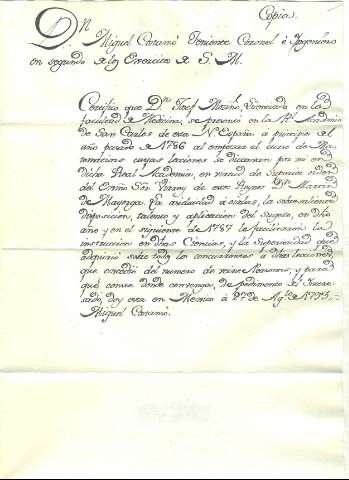 Copia.
Dn Miguel Constansó Teniente Coronel é Ingeniero
en segundo de los Exercitos de S. M.
Certifico que Dn Josef Moziño, Licenciado en la
facultad de Medicina, se presentó en la Rl Academia
de San Carlos de esta Na España á principio del
año pasado de 1786 al empezar el curso de Ma-
tematicas cuyas lecciones se dictaron por mi en
dicha Real Academia, en virtud de Superior orden
del Exmo Sor Virrey de estos Reynos Dn
de Mayorga. La asiduidad á ellas, la sobresaliente
disposicion, talento y aplicacion del Sugeto, en dicho
año y en el siguiente de 1787 le facilitaron la
instruccion en dichas Ciencias, y la Superioridad que
adquirió sobre todos los concurrentes á dhas lecciones,
que excedió del numero de y para
que conste donde convenga, de pedimento del Intere-
sado, doy esta en Mexico á 27 de Agto de 1795.=
Miguel Constansó.